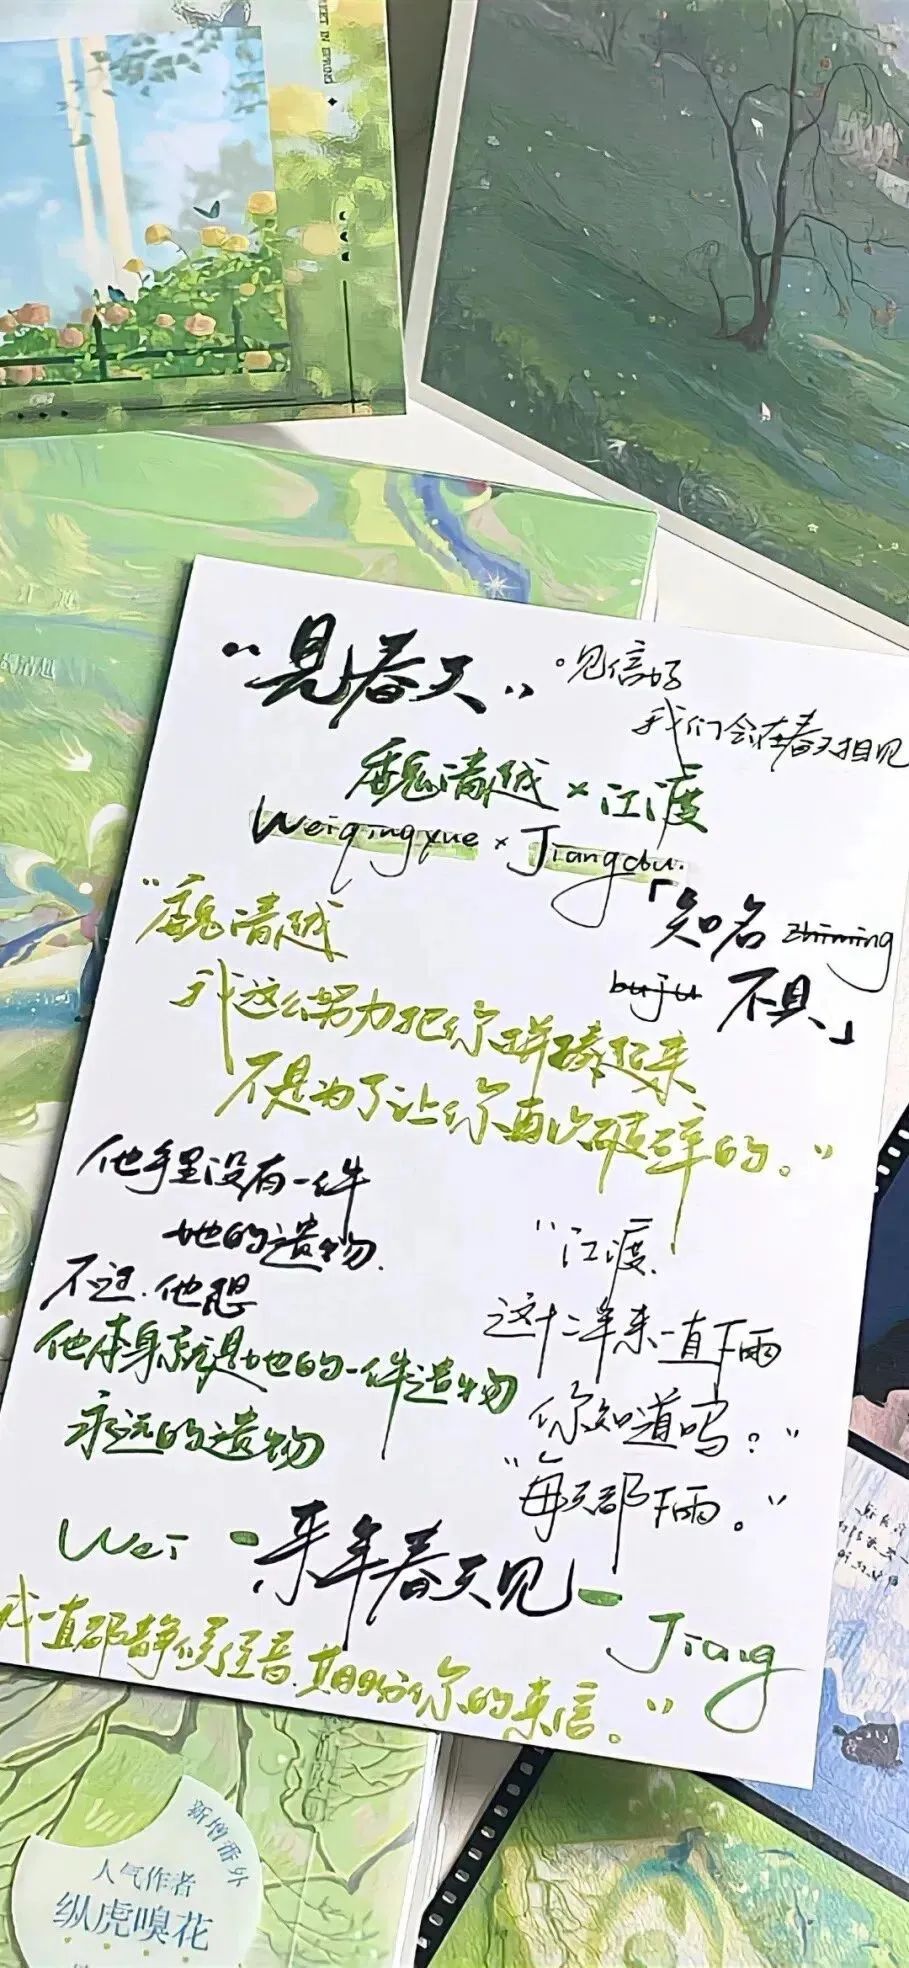 “见春天”
见信好
我们会在春天相见
魏清越×江渡
Weiqingyue × Jiangdu.
「知名 zhiming
buju 不具」
“魏清越
我这么努力把你拼凑起来
不是为了让你再次破碎的。”
他手里没有一件
她的遗物.
不过.他想
他本身就是她的一件遗物
永远的遗物
“江渡.
这十二年来一直下雨
你知道吗?”
“每天都下雨。”
Wei -来年春天见- Jiang
我一直都静候佳音.期盼你的来信。”
新增番外
人气作者
纵虎嗅花